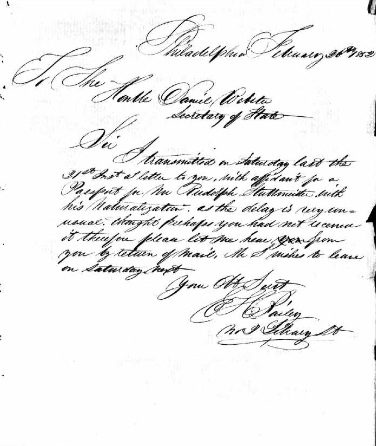 Philadelphia February 26th 1852
To The
Honble Daniel Webster
Secretary of State
Sir
I transmitted on Saturday last the
21st Inst a letter to you, with affidavit for a
Passport for Mr Rudolph with
his Naturalization. as the delay is very un-
usual. thought perhaps you had not received
it therefore please let me hear from
you by return of mail, Mr S wishes to leave
on Saturday next
Your Obt Servt
No 2 Library St